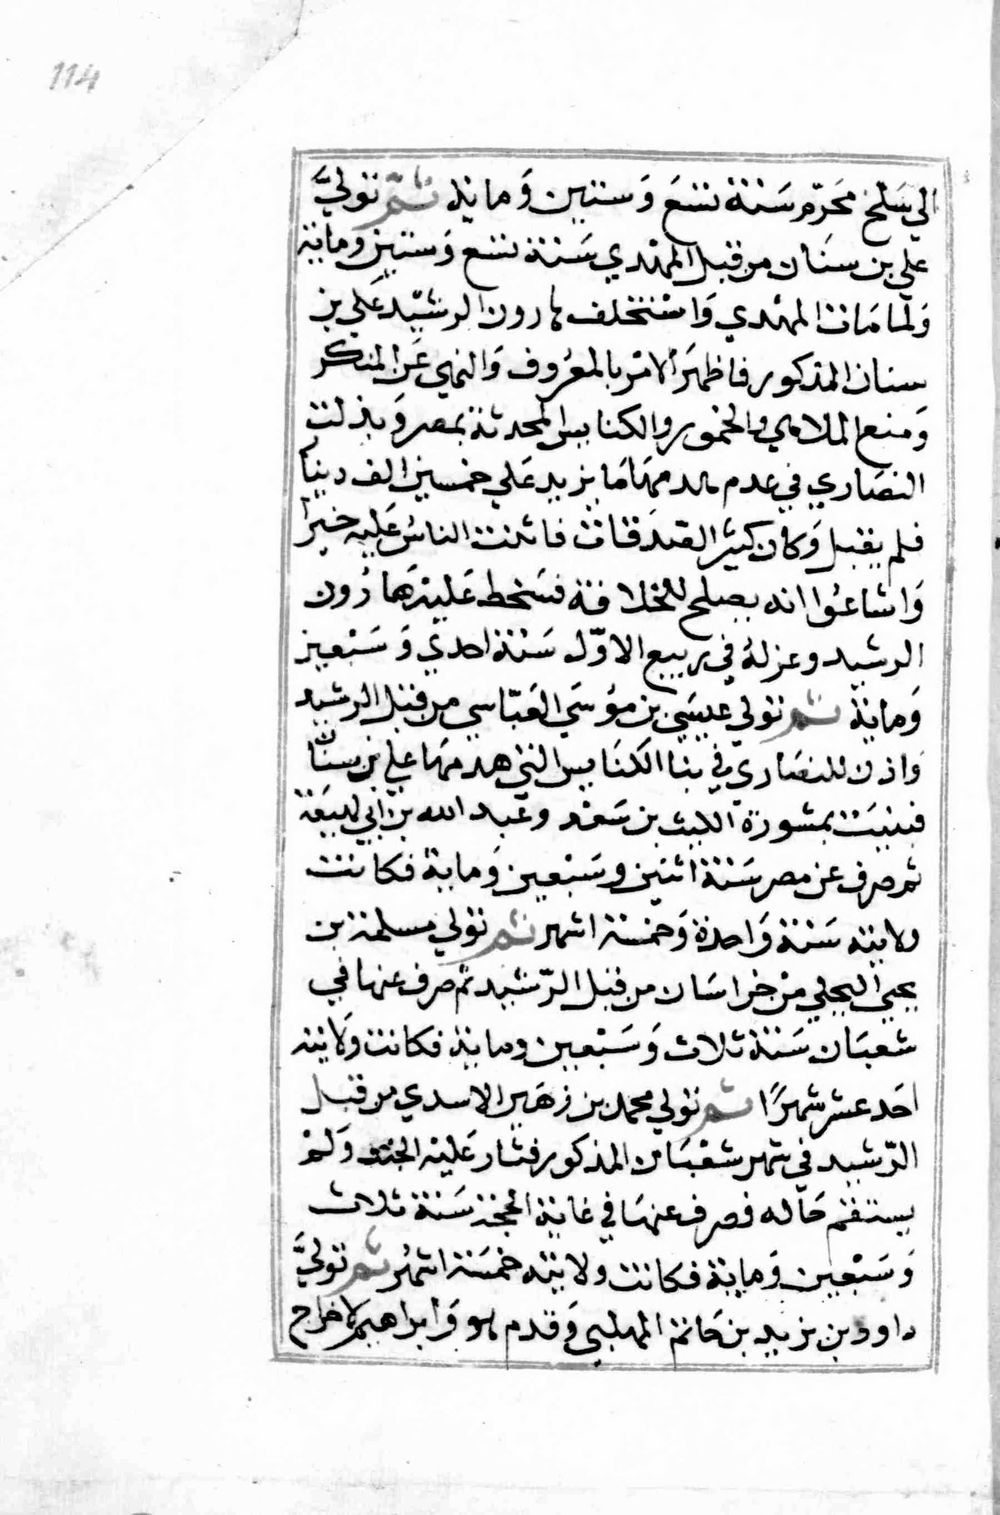 114
الي سَلخ مَحرّم سَنة تسَع وَستين وَماية ثمّ تولّيَ
علي بن سنَان من قبل المهْدي سَنة تسع وَستين وماية
وَلما مَات المهْدي وَاسْتخلف هارون الرشيْد عَلي بن
سنان المذكور فاظهَر الامْر بالمعْروف وَالنهي عَن المنكر
وَمنع الملاهي والخمور والكنايس المحدثة بمصر وَبذلت
النصَاري في عدم هدمهَا مَا يزيد عَلي خمسين الف دينار
فلم يقبل وَكان كثير الصَدقات فاثنت الناسُ عَليه خيرا
وَاشاعُوا انه يصلح للخلافة فسَخط عَليْه هَارُون
الرشيد وعزلهُ في ربيع الاوّل سَنة احدي وَسَبْعين
وَماية ثم تولي عيسَي بن موُسَي العَبّاسي من قبل الرشيد
وَاذن للنصَاري في بنا الكنَايس التي هدمهَا علي بن سنَان
فبنيَت بمشورة الليث بن سَعْد وعَبد الله بن ابي لهيعَة
ثم صرف عن مصر سَنة اثنين وسَبْعين وَماية فكانت
ولايته سَنة وَاحدة وَخمسة اشهر ثم تولي مسلمة بن
يحيي البجلي مِنْ خراسَان من قبل الرّشيد ثم صرف عنها في
شعبَان سَنة ثلاث وَسَبْعين وماية فكانت وَلايته
احَد عشر شهرًا ثم تولي محمد بن زهَير الاسدي من قبل
الرّشيد في شهر شعْبَان المذكور فثار عَليْه الجند وَلمْ
يستقم حَاله فصرف عنهَا في غاية الحجة سَنة ثلاث
وَسَبْعين وَماية فكانت ولايته خمسَة اشهُر ثم تولّيَ
داوود بن يزيد بن حَاتم المهلبي وَقدم هو وَابراهيم لاخراج